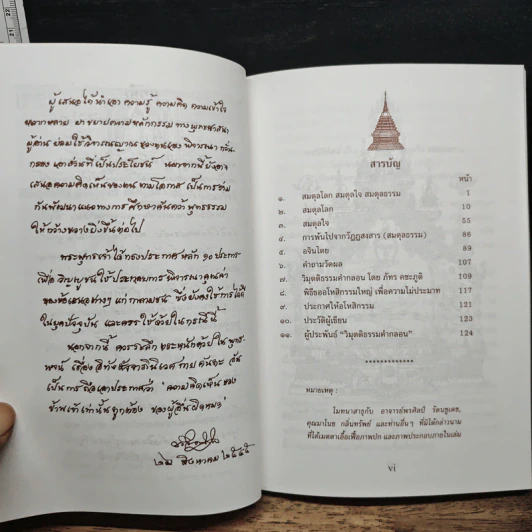 ผู้เสนอได้นำเอา ความรู้ ความคิด ความเข้าใจ
หลากหลาย มาขยายตามหลักกรรม ทางพุทธศาสนา
ผู้อ่าน ย่อมใช้วิจารณญาณ ของตนเอง พิจารณา กลั่น
กรอง เอาส่วนที่เป็นประโยชน์ นอกจากนี้ยังอาจ
เสนอความคิดเห็นของตน ตามโอกาส เป็นการร่วม
กันพัฒนาแนวทางการศึกษาค้นคว้า พุทธธรรม
ให้กว้างขวางยิ่งขึ้นต่อไป
พระพุทธเจ้าได้ทรงประกาศหลัก ๑๐ ประการ
เพื่อ วิญญูชนใช้ประกอบการพิจารณาคุณค่า
ของข้อเสนอต่างๆ แก่ กาลามชน ซึ่งยังคงใช้การได้ดี
ในยุคปัจจุบัน และควรใช้ด้วยในกรณีนี้
นอกจากนี้ ควรระลึก
เป็นการถือเอาประกาศว่า "ความคิดเห็นของ
ข้าเจ้าเท่านั้นถูกต้อง ของผู้อื่นผิดหมด"
สิงหาคม ๒๕๔๕
สารบัญ
หน้า
๑. สมดุลโลก สมดุลใจ สมดุลธรรม 1
๒. สมดุลโลก 10
๓. สมดุลใจ 55
๔. การพ้นไปจากวัฏฏสงสาร (สมดุลธรรม) 86
๕. อจินไตย 89
๖. คำถามวัดผล 107
๗. วิมุตติธรรมคำกลอน โดย ภัทร คชะภูติ 109
๘. พิธีขออโหสิกรรมใหญ่ เพื่อความไม่ประมาท 117
๙. ประกาศให้อโหสิกรรม 121
๑๐. ประวัติผู้เขียน 123
๑๑. ผู้ประพันธ์ "วิมุตติธรรมคำกลอน" 124
หมายเหตุ :
โมทนาสาธุกับ อาจารย์พรศิลป์ รัตนชูเดช,
คุณมาโนช กลิ่นทรัพย์ และท่านอื่นๆ ที่มิได้กล่าวนาม
ที่ได้เมตตาเอื้อเฟื้อภาพปก และภาพประกอบภายในเล่ม
vi